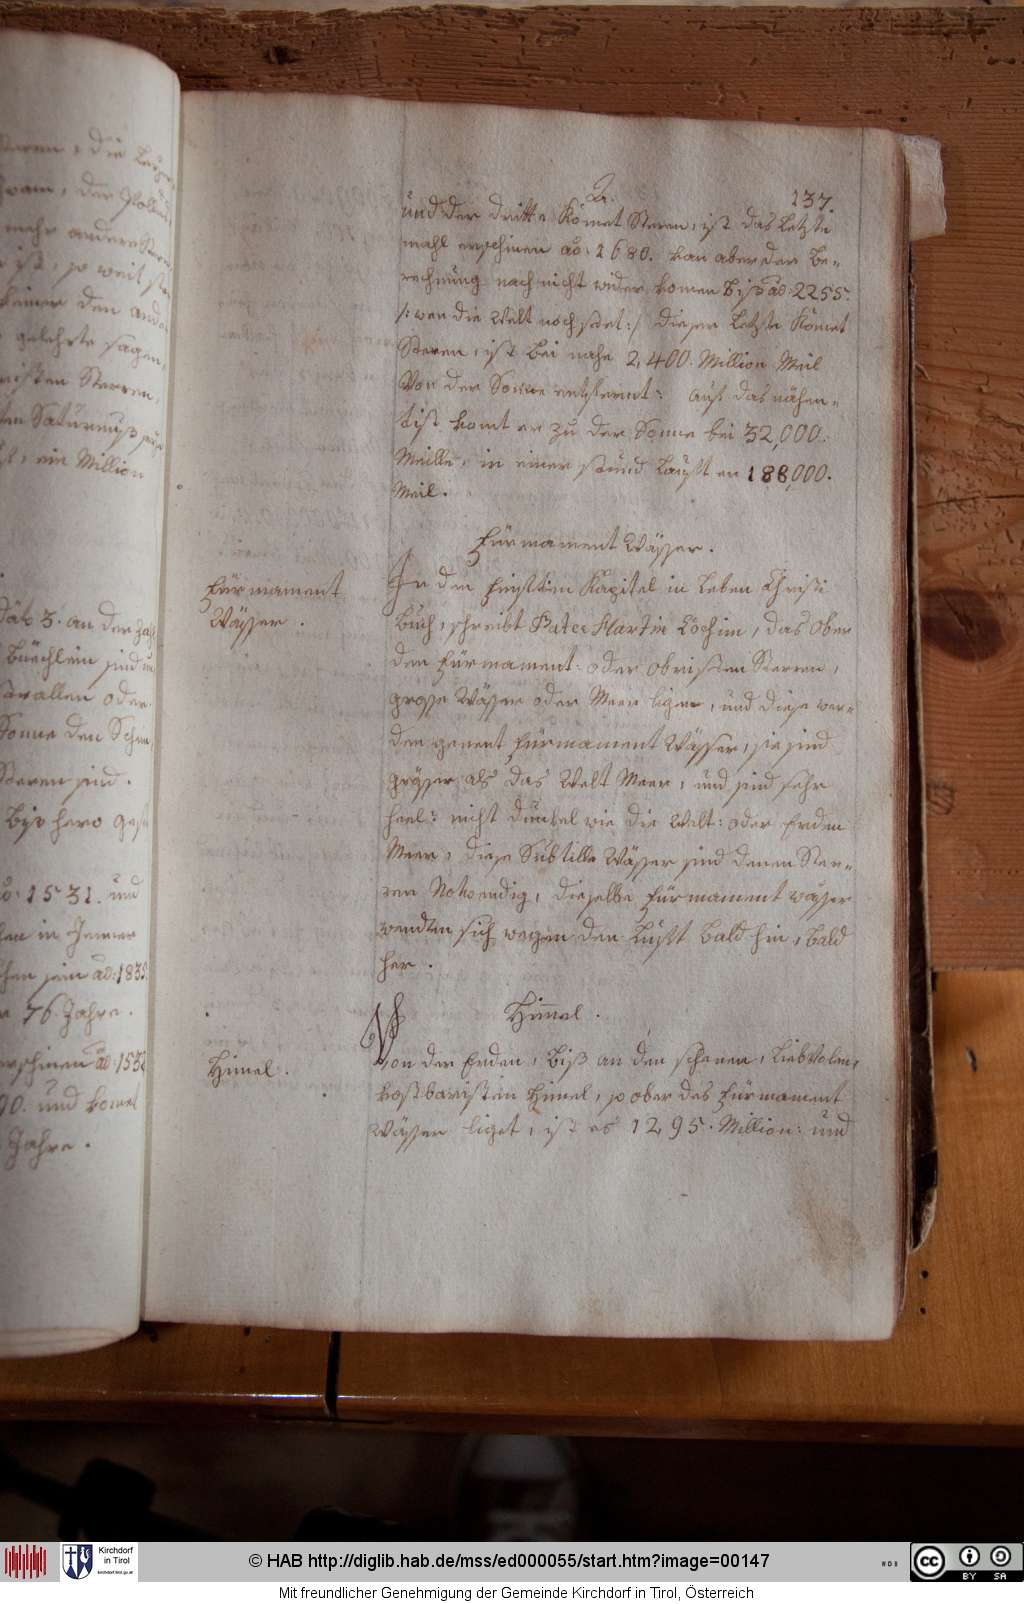 2. 137.
und der dritte Komet Steren, ist das Letzte
mahl erschinen ao: 1680. kan aber der Be=
rechnung nach nicht wider komen biß ao: 2255.
/: wen die Welt noch stet :/ dieser Letzte Komet
Steren, ist bei nahe 2,400. Million Meil
Von der Sonne entfernt: auf das nähen=
tist komt er zu der Sonne bei 32,000.
Meille, in einer stund Laufft er 188,000.
Meil.
Fürmament Wässer.
Fürmament
Wässer.
In den Capitel in Leben Christi
Buch, schreibt Pater Martin Cochim, das ober
den Fürmament: oder obristen Sterren,
grosse Wässer oder Meer ligen, und diese wer=
den genent Fürmament Wässer, sie sind
grösser als das Welt Meer, und sind sehr
heel: nicht dunkel wie die Welt: oder Erden
Meer, diese Subtille Wässer sind denen Ster=
ren Notwendig, dieselbe Fürmament wässer
wendten sich wegen den Lufft bald hin, bald
her.
Himel.
Himel.
Von der Erden, biß an den schenen, Liebvolen,
kostbaristen Himel, so ober das Fürmament
Wässer liget, ist es 1295. Million: und
Steren, die
mehr andere
ist, so weit
keiner den
gelehrte sagen,
Sterren,
Saturnus
ein Million
3. an der Zahl
Büechlein sind
oder
Sonne den
Steren sind.
Biß hero
ao: 1531. und
in Jenner
sein ao: 1835
76. Jahre.
erschinen ao: 1532
90. und komet
Jahre.
Kirchdorf
in Tirol
kirchdorf.tirol.gv.at
© HAB http://diglib.hab.de/mss/ed000055/start.htm?image=00147
WDB
cc BY SA
Mit freundlicher Genehmigung der Gemeinde Kirchdorf in Tirol, Österreich